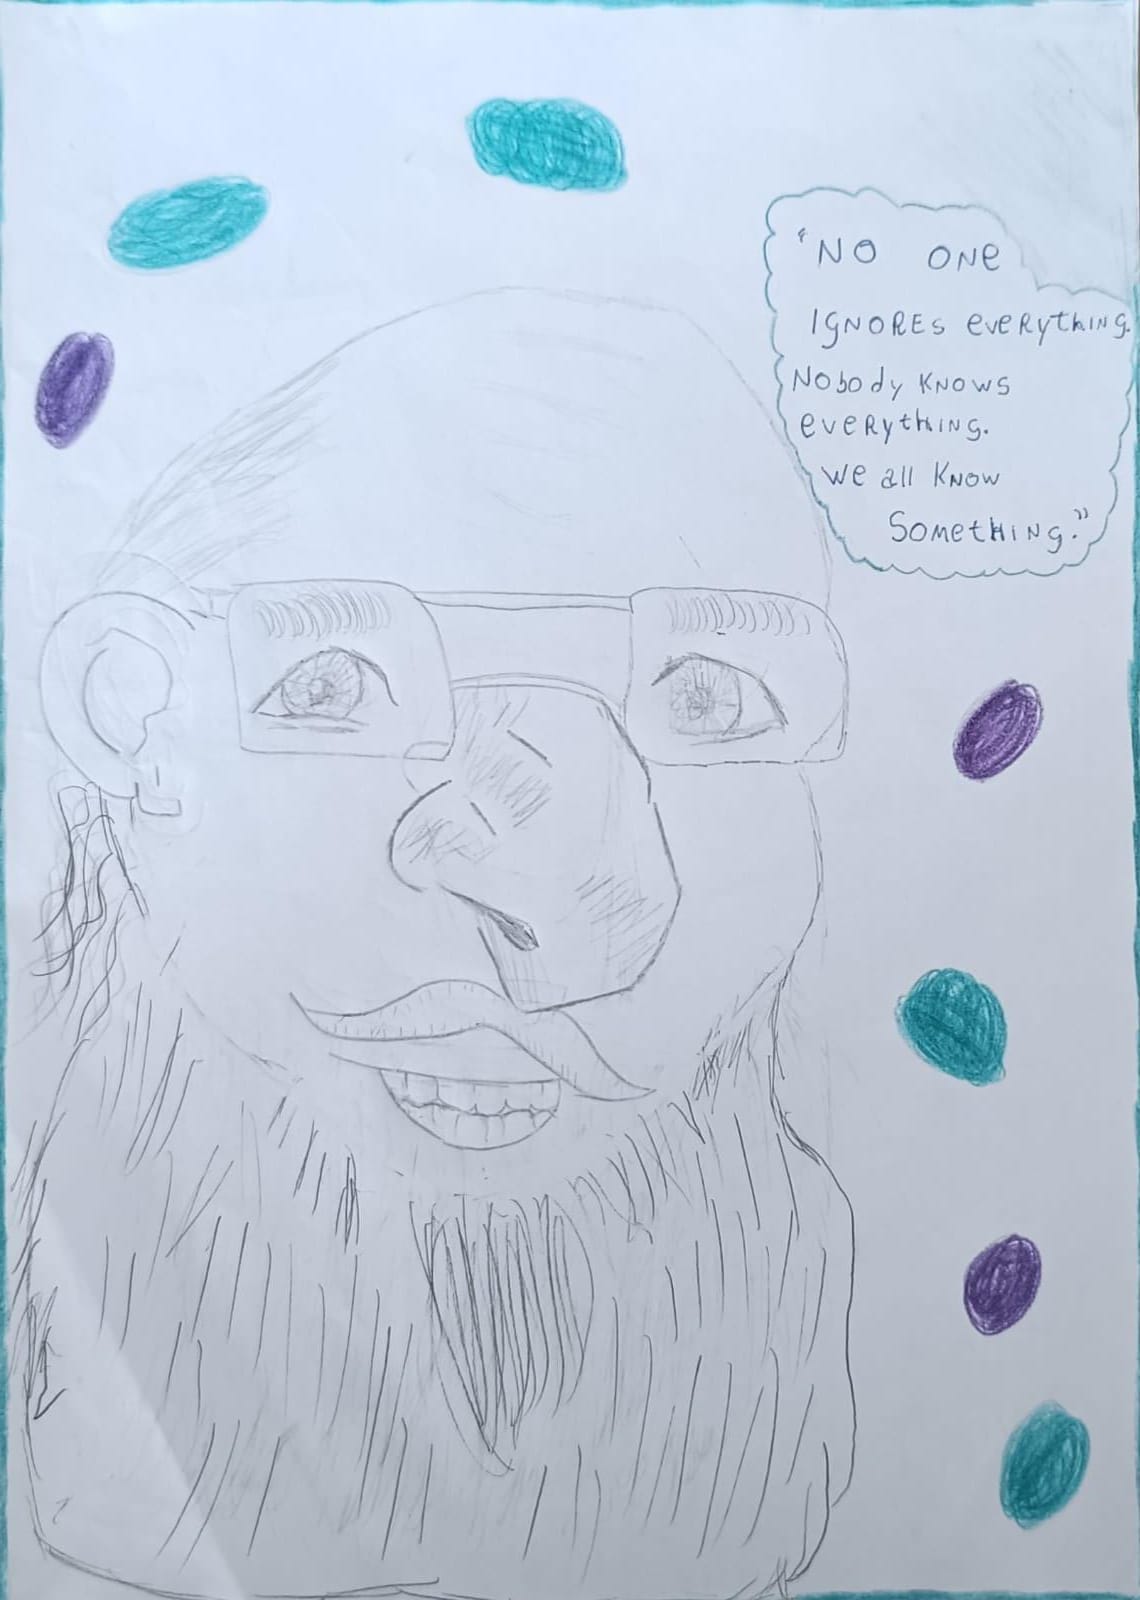 "NO ONE
IGNORES everything.
Nobody knows
everything.
we all know
Something."